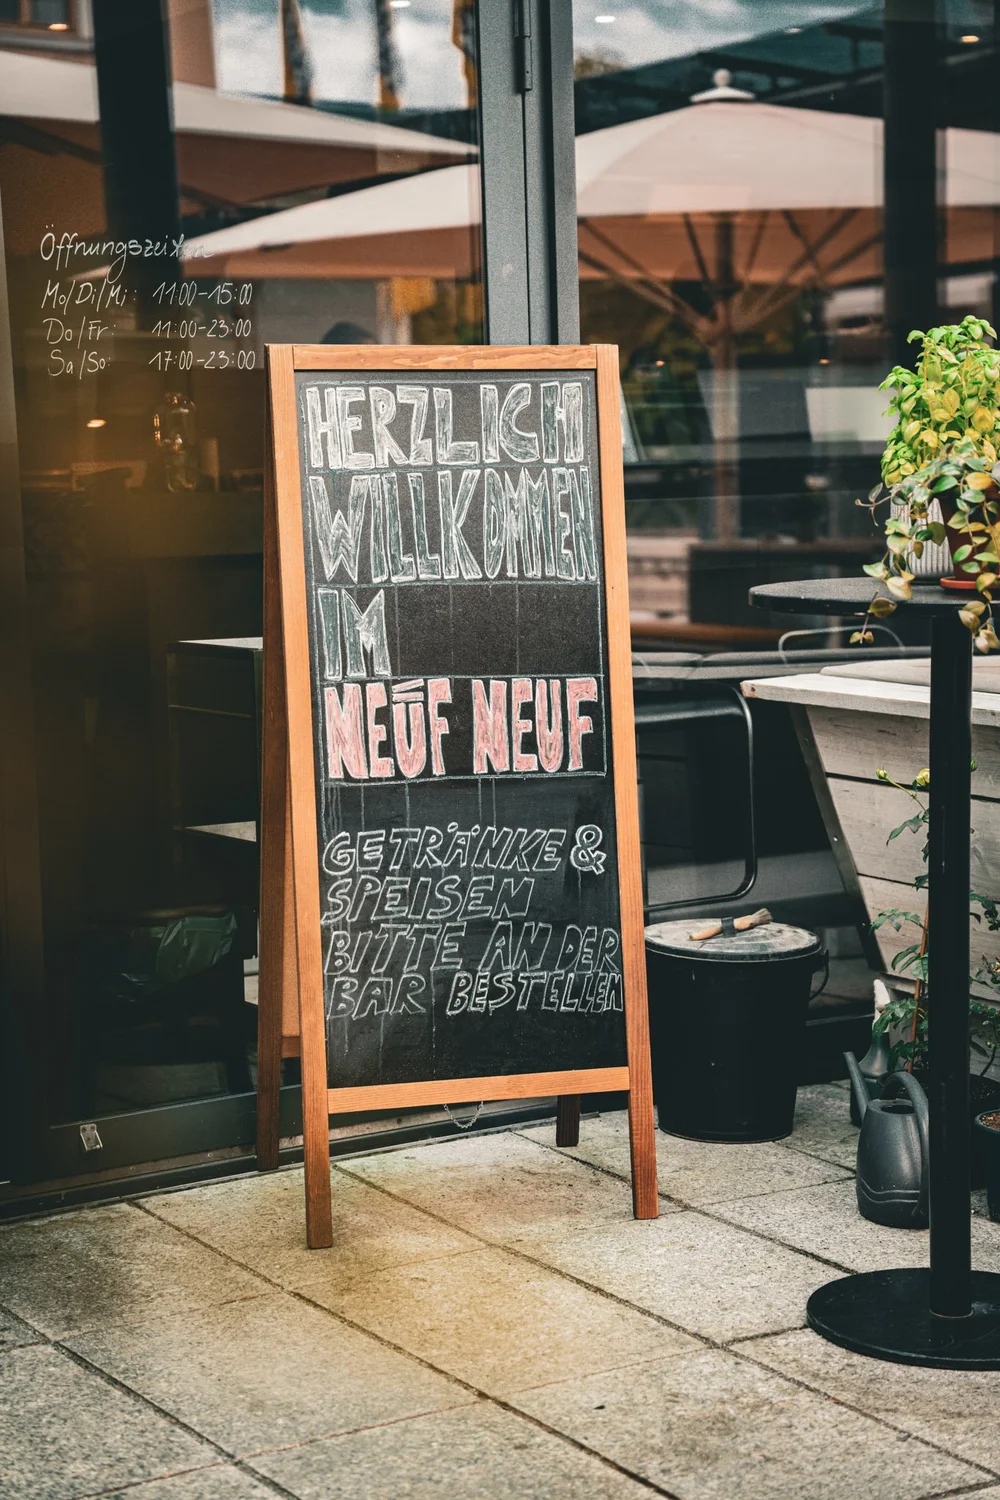 Öffnungszeiten
Mo/Di/Mi: 11:00-15:00
Do/Fr: 11:00-23:00
Sa/So: 17:00-23:00
HERZLICH
WILLKOMMEN
IM
NEŪF NEUF
GETRÄNKE &
SPEISEN
BITTE AN DER
BAR BESTELLEN